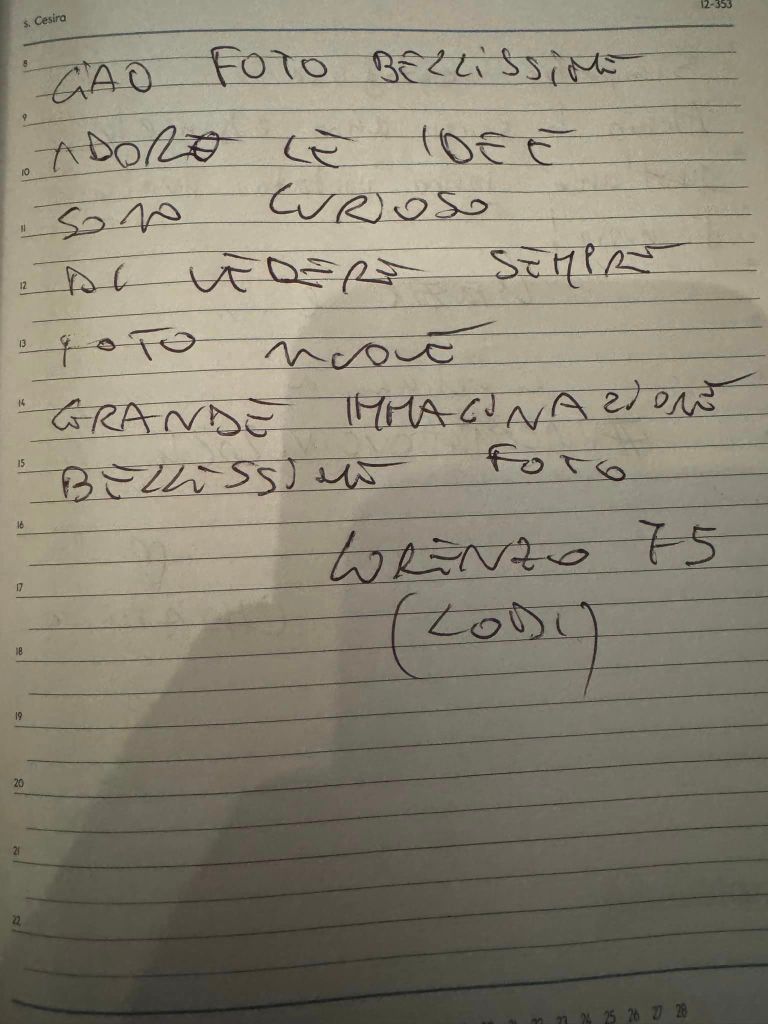 s. Cesira
12-353
8
CIAO FOTO BELLISSIME
9
ADORO LE IDEE
10
SONO CURIOSO
11
DI VEDERE SEMPRE
12
FOTO NUOVE
13
GRANDE IMMAGINAZIONE
14
BELLISSIME FOTO
15
16
LORENZO 75
17
(LODI)
18
19
20
21
22
21 22 23 24 25 26 27 28